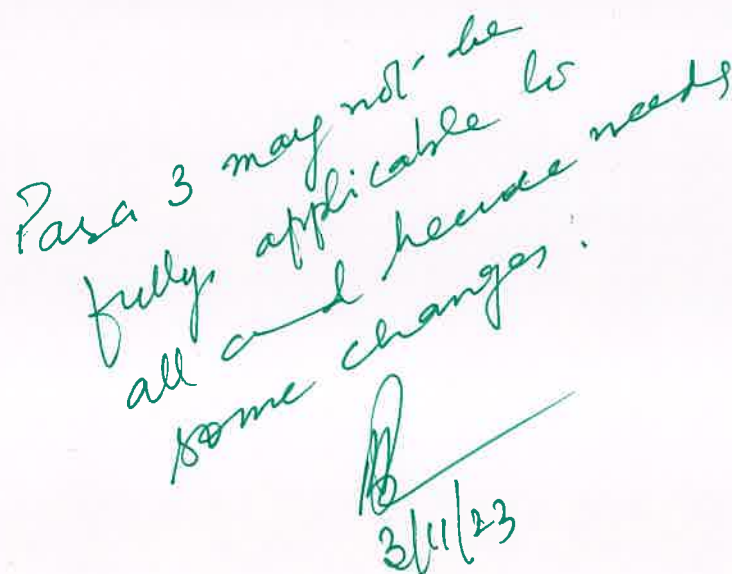 Para 3 may not be
fully applicable to
all and hence needs
some changes.
3/11/23